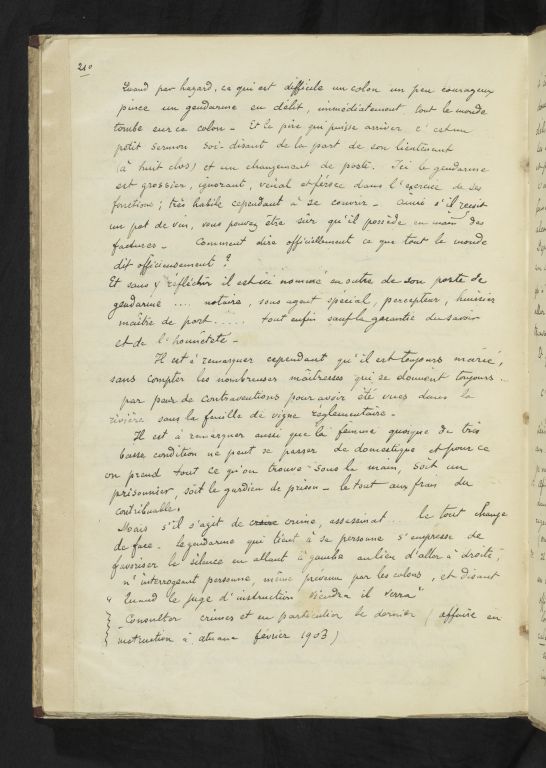 210
Quand par hazard, ce qui est difficile un colon un peu courageux
pince un gendarme en délit, immédiatement tout le monde
tombe sur ce colon - Et le pire qui puisse arriver c'est un
petit sermon soi-disant de la part de son lieutenant
(à huit clos) et un changement de poste. Ici le gendarme
est grossier, ignorant, vénal et féroce dans l'exercice de ses
fonctions; très habile cependant à se couvrir - Ainsi s'il reçoit
un pot de vin, vous pouvez être sûr qu'il possède en main des
factures - Comment dire officiellement ce que tout le monde
dit officieusement ?
Et sans y réfléchir il est ici nommé en outre de son poste de
gendarme .... notaire, sous agent spécial, percepteur, huissier
maître de port ..... tout enfin sauf la garantie du savoir
et de l'honnêteté -
Il est à remarquer cependant qu'il est toujours marié,
sans compter les nombreuses maîtresses qui se donnent toujours ..
par peur de contraventions pour avoir été vues dans la
rivière sans la feuille de vigne réglementaire -
Il est à remarquer aussi que la femme quoique de très
basse condition ne peut se passer de domestique et pour ce
on prend tout ce qu'on trouve sous la main, soit un
prisonnier, soit le gardien de prison - le tout aux frais du
contribuable.
Mais s'il s'agit de crime, assassinat ... le tout change
de face - Le gendarme qui tient à sa personne s'empresse de
favoriser le silence en allant à gauche au lieu d'aller à droite,
n'interrogeant personne, même prévenu par les colons, et disant
" Quand le juge d'instruction viendra il verra"
Consulter crimes et en particulier le dernier (affaire en
instruction à atuana février 1903)